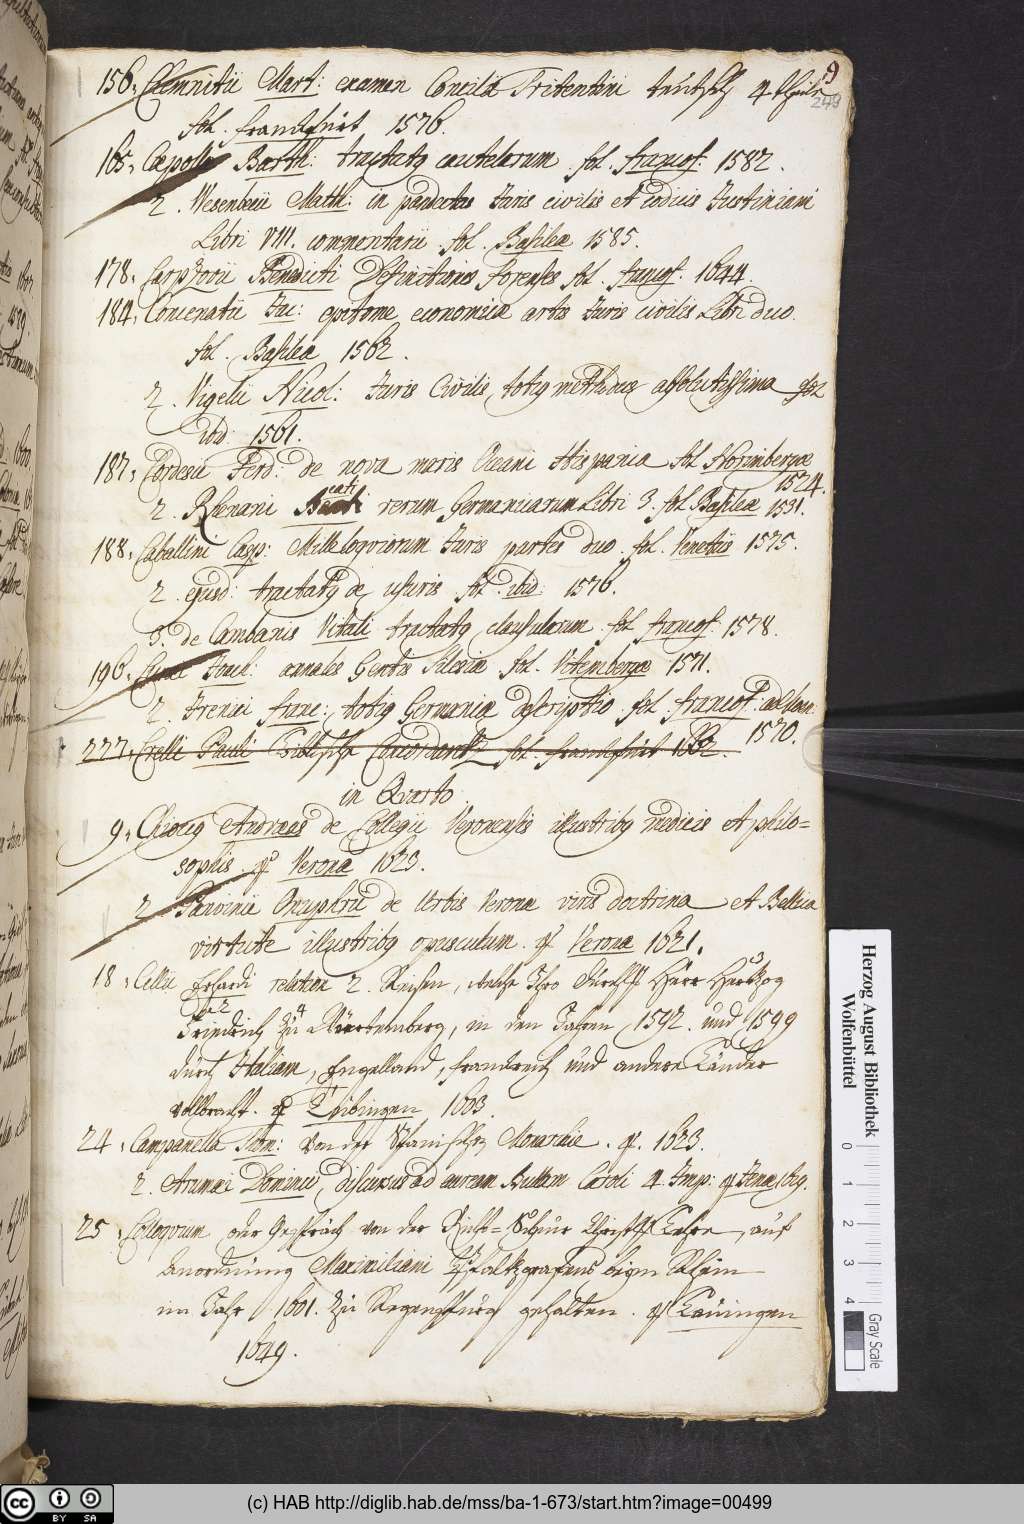 9
249
156. Chemnitii Mart: examen Concilii Tritentini teutsch 4 theile
fol. Franckfurt 1576.
165. Cæpollæ Barth: tractatq cautelarum fol. francof: 1582.
2. Wesenbecii Matth: in pandectas Juris civilis et codicis Justiniani
Libri VIII. commentarii fol. Basileæ 1585.
178. Carpzovii Benedicti Definitiones forenses fol. francof: 1644.
184. Concenatii Jac: epitome economicæ artis Juris civilis Libri duo.
fol. Basileæ 1562.
2. Vigelii Nicol: Juris Civilis totiq methodus absolutissima fol
ibid: 1561.
187. Cordesii Ferd: de nova maris Oceani Hispania fol Norimbergæ
1524.
2. Rhenani Beati rerum Germanicarum Libri 3. fol Basileæ 1531.
188. Caballini Casp: Milleloqviorum Juris partes duo. fol. Venetiis 1575.
2. ejusd: tractatq de usuris fol. ibid: 1576.
3. de Cambanis Vitali tractatq clausularum fol francof: 1578.
196. Curei Joach: annales Gentis Silesiæ fol. Vitembergæ 1571.
2. Irenici franc: totiq Germaniæ descriptio fol. francof: ad Moen.
1570.
227. Crelli Pauli Biblische Concordantz fol. franckfurt
in Qvarto
9. Chiocq Andreas de Collegii Veronensis illustribq medicis et philo=
sophis 4º Veronæ 1623.
2. Panvinii Onuphrii de Urbis Veronæ viris doctrina et Bellica
virtute illustribq opusculum. 4º Veronæ 1621.
18. Cellii Erhardi relation 2. Reisen, welche Ihro Durchl Herr Hertzog
Friedrich zu Würtemberg, in den Jahren 1592. und 1599
durch Italiam, Engelland, franckreich und andere Länder
vollbracht. 4º Tübingen 1603.
24. Campanella Thom: Von der Spanischen Monarchie. 4º. 1623.
2. Arumæi Dominici, discursus ad auream Bullam Caroli 4 Imp: 4º Jenæ 1619.
25. Colloqvium oder Gespräch von der Richt=Schnur Christl Lehre, auf
Anordnung Maximiliani Pfaltzgrafens beym Rhein
im Jahr 1601. zu Regenspurg gehalten. 4º Lauingen
1649.
Herzog August Bibliothek
Wolfenbüttel
0
1
2
3
4
Gray Scale
(c) HAB http://diglib.hab.de/mss/ba-1-673/start.htm?image=00499
CC BY SA